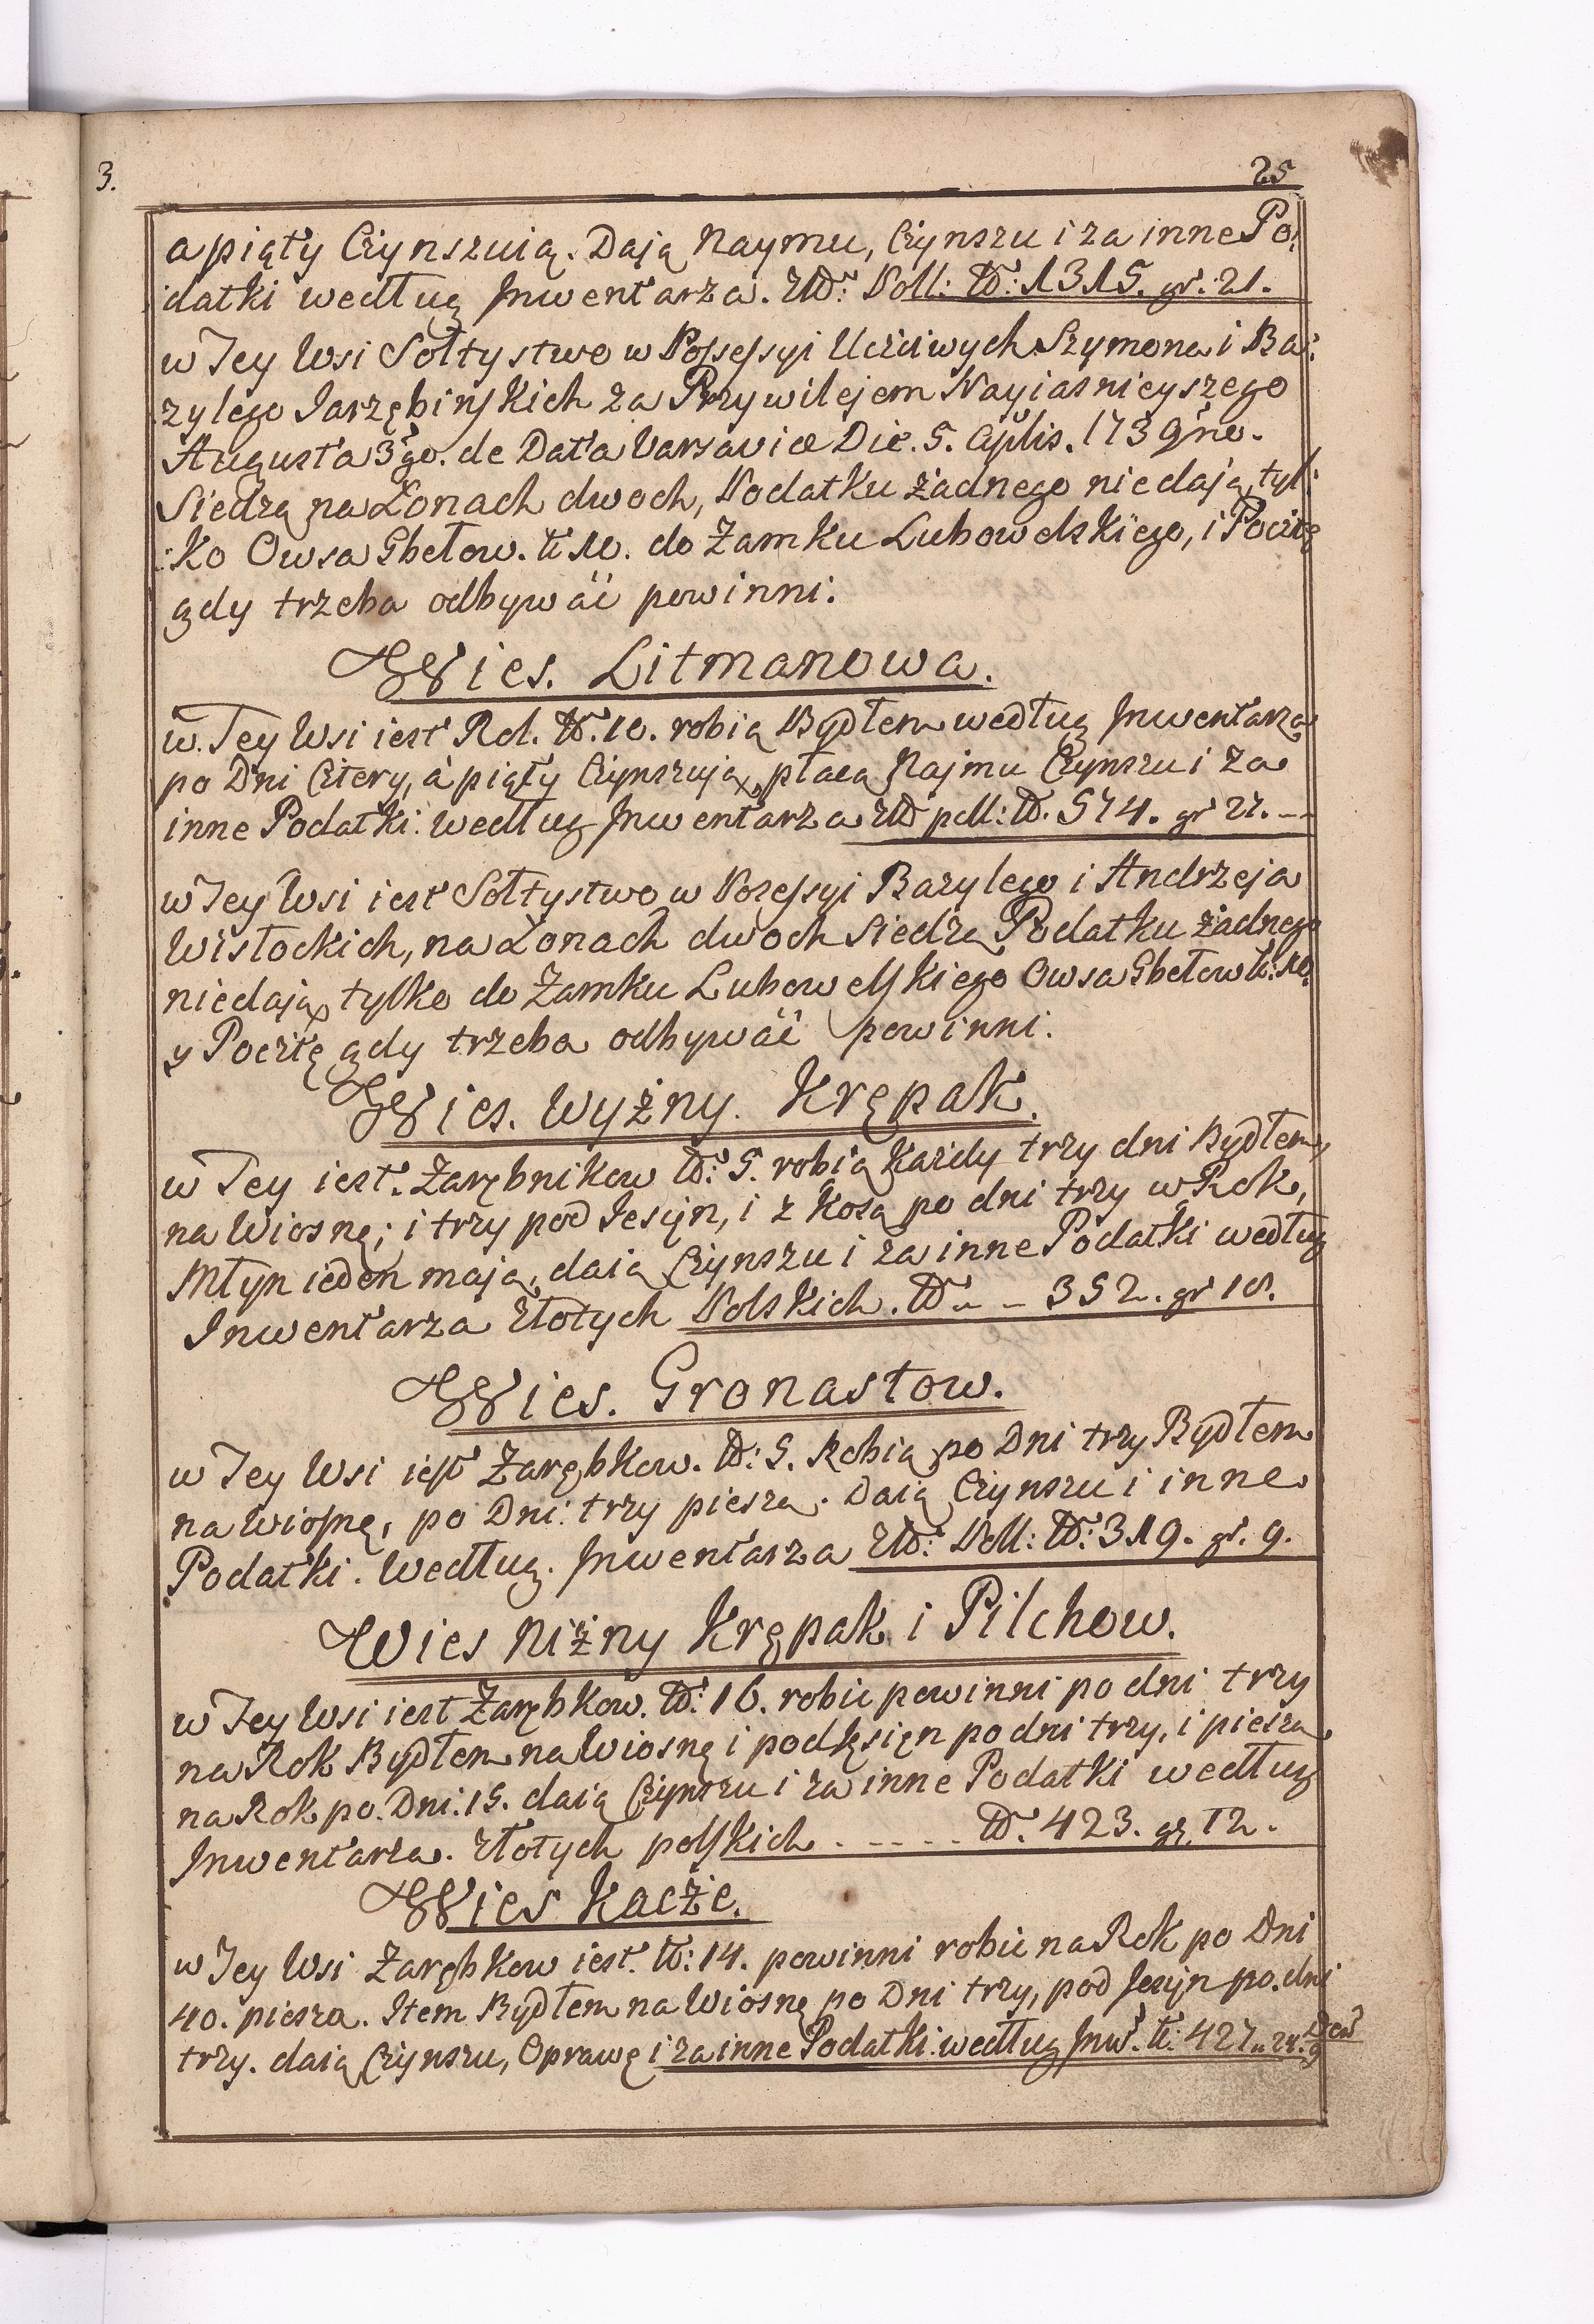 3.
25
a piąty Czynszuią. Dają Naymu, Czynszu i za inne Po:
:datki według Jnwentarza. Złł: Poll: No: 1315. gr. 21.
w Tey Wsi Sołtystwo w Possessyi Uczciwych Szymona i Ba:
:zylego Jarzębinskich za Przywilejem Nayiasnieyszego
Augusta 3go. de Data Varsaviæ Die. 5. Aplis. 1739no.
Siedzą na Łonach dwoch, Podatku żadnego niedają, tyl:
:ko Owsa Gbełow. No 10. do Zamku Lubowelskiego, i Pocztę
gdy trzeba odbywać powinni.
Wies. Litmanowa.
w Tey Wsi iest Rol. No. 10. robią Bydłem według Jnwentarza
po Dni Cztery, a piąty Czynszują, płacą Najmu Czynszu i za
inne Podatki. według Jnwentarza Złł poll: No. 574. gr 27.--
w Tey Wsi iest Sołtystwo w Posessyi Bazylego i Andrzeja
Wisłockich, na Łonach dwoch Siedzą Podatku żadnego
niedają, tylko do Zamku Lubowelskiego Owsa Gbełow No: 10.
y Pocztę gdy trzeba odbywać powinni.
Wies. Wyżny. Krępak.
w Tey iest. Zarębnikow No: 5. robią Każdy trzy dni Bydłem,
na Wiosnę; i trzy pod Jesięn, i z Kosą po dni trzy w Rok,
Młyn ieden mają, daią Czynszu i za inne Podatki według
Inwentarza Złotych Polskich. No -- 352. gr 18.
Wies. Gronastow.
w Tey Wsi iest Zarębkow. No: 5. Robią po Dni trzy Bydłem
na Wiosnę, po Dni trzy piesza. Daią Czynszu i inne
Podatki. Według. Jnwentarza Złł: Poll: No: 319. gr. 9.
Wies Niżny Krępak i Pilchow.
w Tey Wsi iest Zarębkow. No: 16. robic powinni po dni trzy
na Rok Bydłem na Wiosnę i pod Jesięn po dni trzy, i piesza
na Rok po. Dni. 15. daią Czynszu i za inne Podatki według
Jnwentarza. Złotych polskich . ---- No. 423. gr. 12.
Wies Kacże.
w Tey Wsi Zarębkow iest. No: 14. powinni robic na Rok po Dni
40. piesza. Item Bydłem na Wiosnę po Dni trzy, pod Jesięn po. dni
trzy. daią Czynszu, Oprawę i za inne Podatki. według Jnw. No: 427.